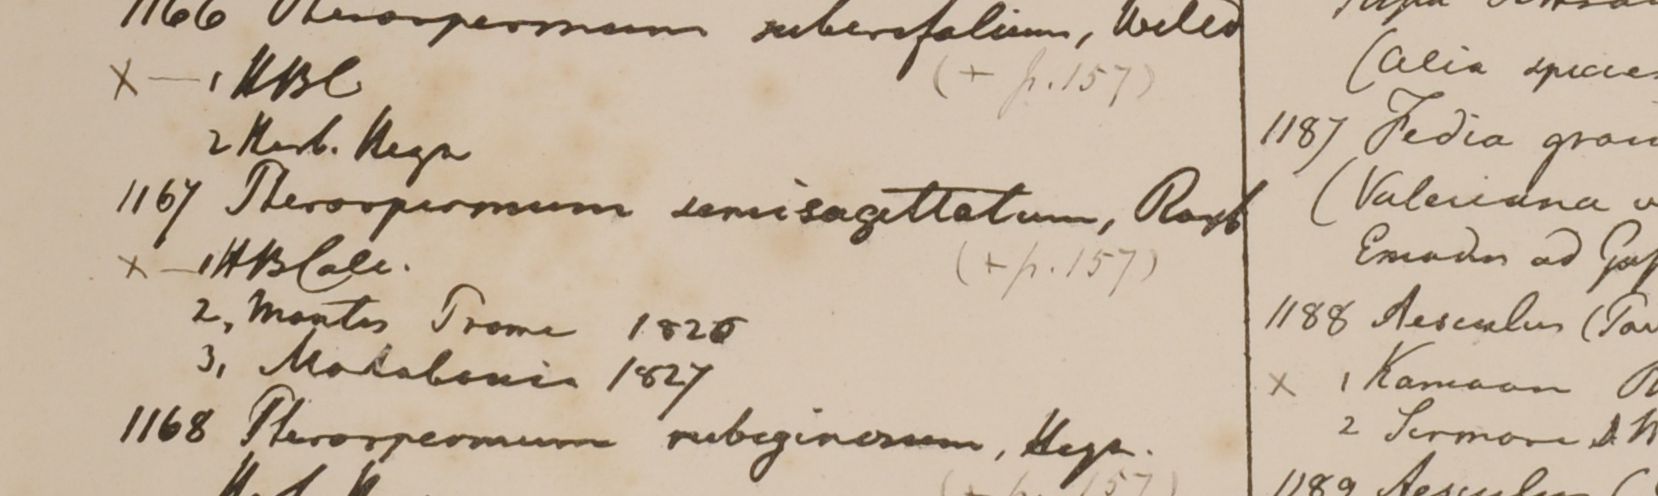 1166 Pterospermum suberifolium, Willd
X — 1 HBC
(+ p. 157)
2 Herb. Heyn
1167 Pterospermum semisagittatum, Roxb
X — 1 HBCalc.
(+ p. 157)
2, Montis Prome 1826
3, Moalabania 1827
1168 Pterospermum rubiginosum, Heyn.
Herb.
(+ p. 157)
(alia species
1187 Fedia
(Valeriana
Emodus ad
1188 Aesculus
X 1 Kamaon
2 Sirmore
1189 Aesculus